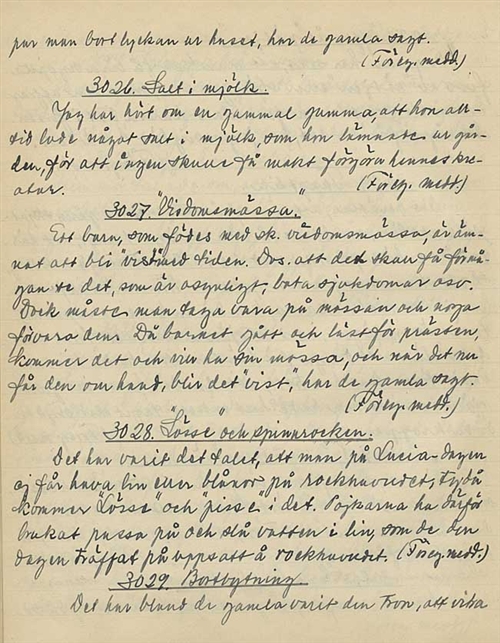 per man bort lyckan ur huset, har de gamla sagt.
(Föreg. medd.)
3026. Salt i mjölk.
Jag har hört om en gammal gumma, att hon all-
tid lade något salt i mjölk, som hon lämnade ur går-
den, för att ingen skulle få makt förgöra hennes kre-
atur. (Föreg. medd.)
3027. "Visdomsmössa."
Ett barn, som födes med sk. visdomsmössa, är äm-
nat att bli "vis" med tiden. Dvs. att det skall få förmå-
gan se det, som är osynligt, bota sjukdomar osv.
Dock måste man taga vara på mössan och noga
förvara den. Då barnet gått och läst för prästen,
kommer det och vill ha sin mössa, och när det nu
får den om hand, blir det "vist", har de gamla sagt.
(Föreg. medd.)
3028. "Lösse" och spinnrocken.
Det har varit det talet, att man på Lucia-dagen
ej får hava lin eller blånor på rockhuvudet, ty då
kommer "Lösse" och "pisse" i det. Pojkarna ha därför
brukat passa på och slå vatten i lin, som de den
dagen träffat på uppsatt å rockhuvudet. (Föreg. medd.)
3029. Bortbytning
Det har bland de gamla varit den tron, att vitra